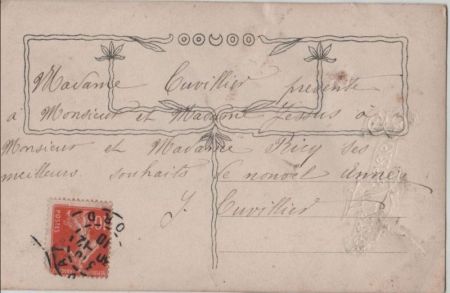 Madame Cuvillier présente
a Monsieur et Madame Jessus à
Monsieur et Madame Bicq ses
meilleurs souhaits de nouvel année
J. Cuvillier
POSTES
10